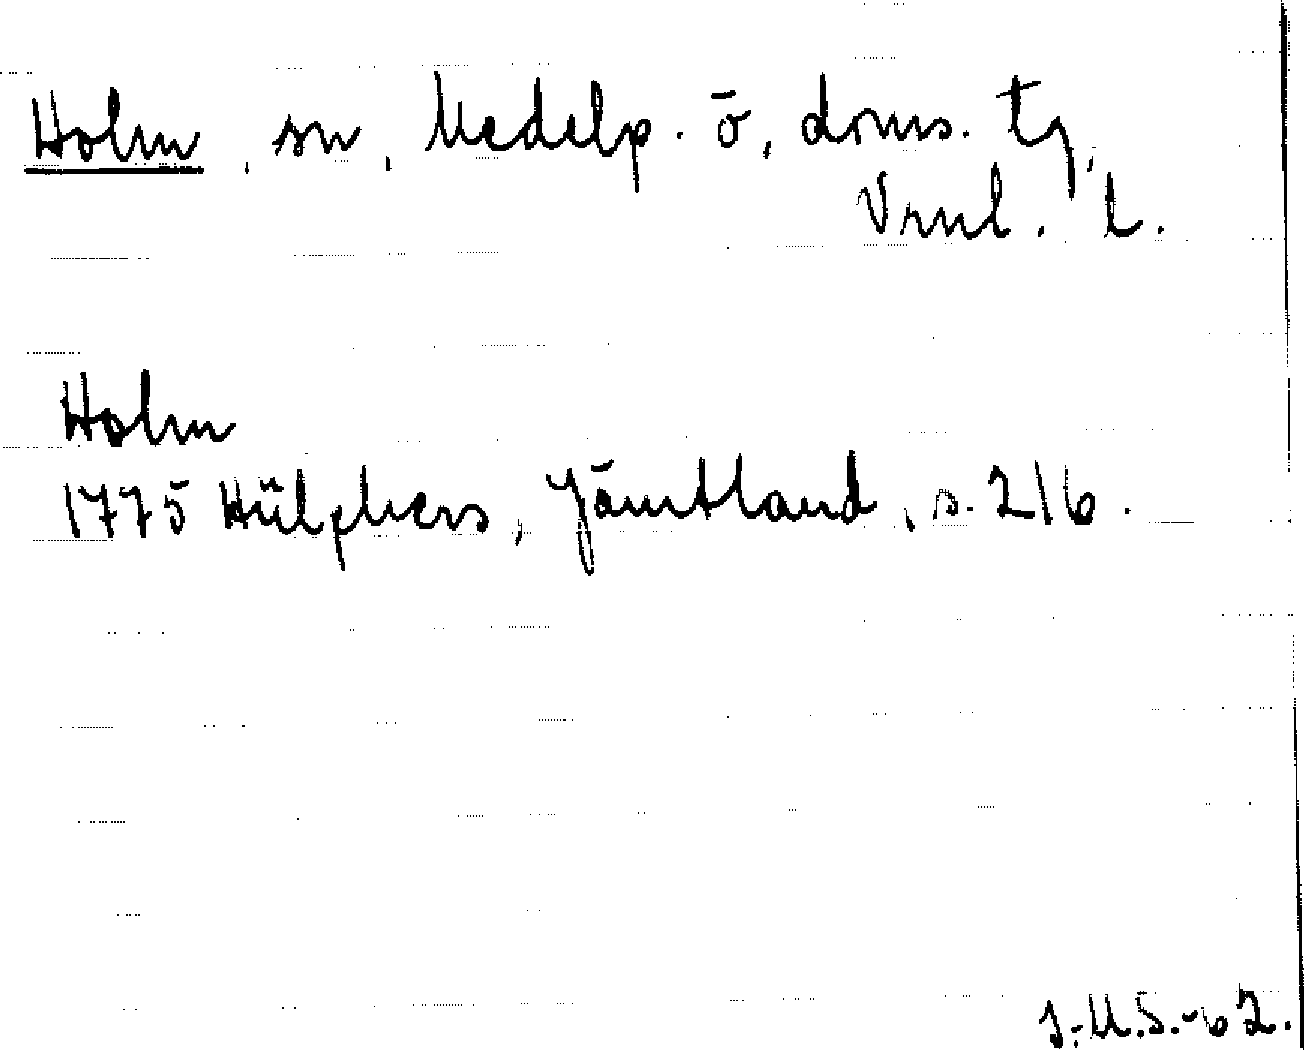 Holm, sn, Medelp. ö, doms. tg,
Vrnl. l.
Holm
1775 Hülphers, Jämtland, s. 216.
J.-U.S.-62.